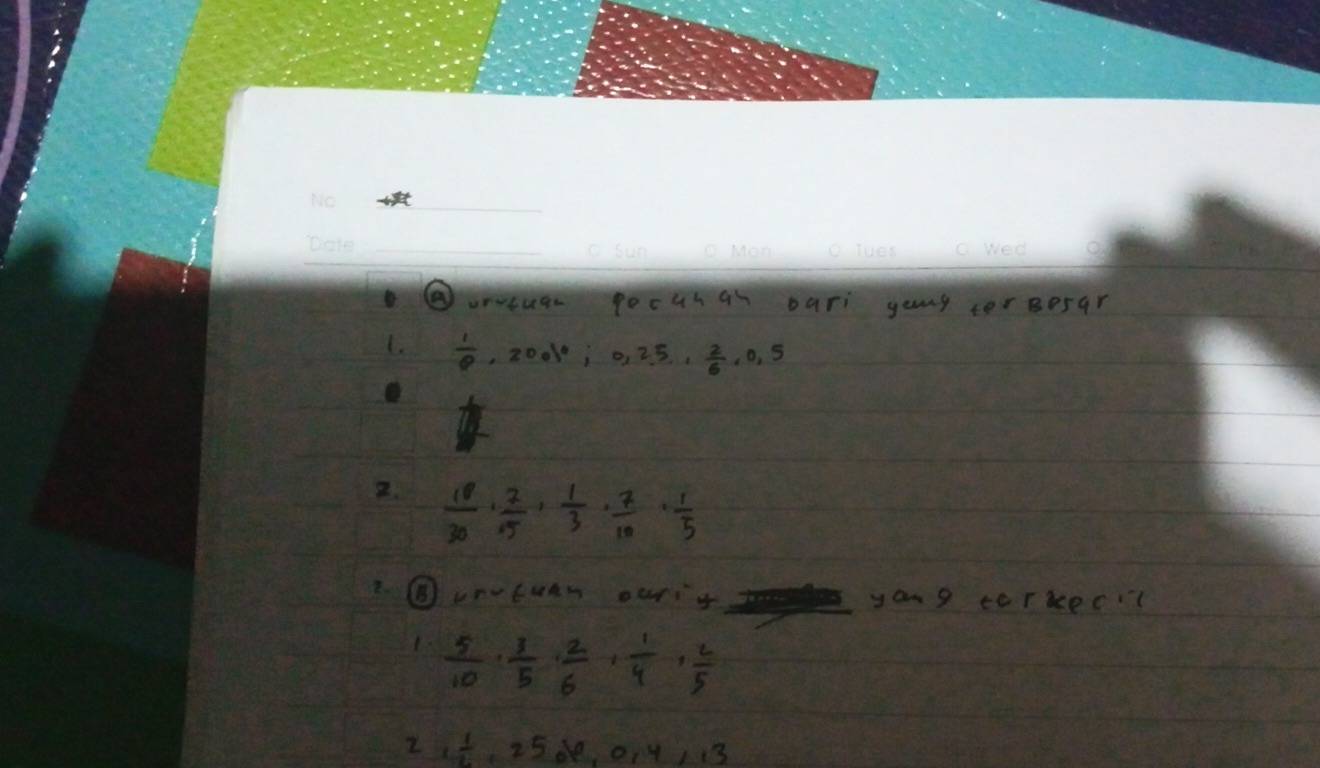 No
Date Sun Mon Tues Wed
A urutuan pecahan dari yang terBesar
1. 1/8, 20%; 0,25, 2/6, 0,5
2. 18/30, 2/15, 1/3, 7/10, 1/5
2. B urutuan dari yang terkecil
1. 5/10, 3/5, 2/6, 1/4, 2/5
2 25%, 0,4